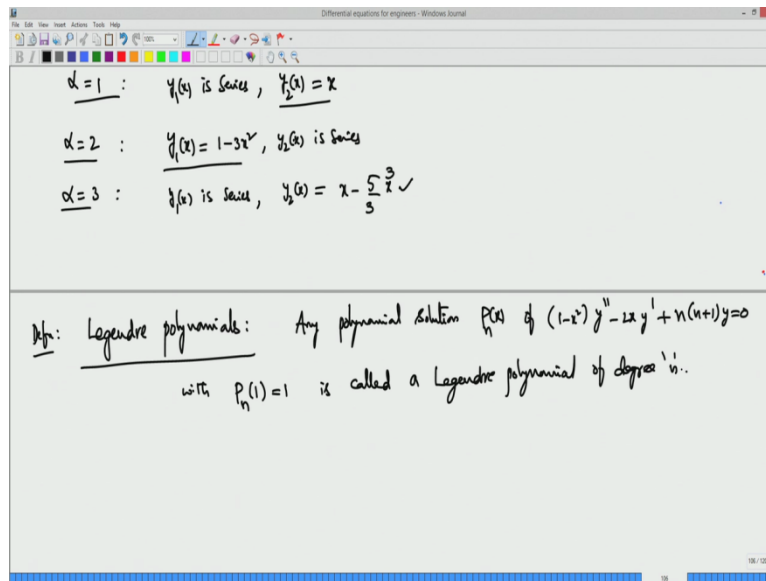 Differential equations for engineers - Windows Journal
File Edit View Insert Actions Tools Help
100%
B I
α = 1 : y₁(x) is Series, y₂(x) = x
α = 2 : y₁(x) = 1-3x², y₂(x) is Series
α = 3 : y₁(x) is Series, y₂(x) = x - 5/3 x³ ✓
Defn: Legendre polynomials: Any polynomial solution Pₙ(x) of (1-x²) y'' - 2x y' + n(n+1)y=0
with Pₙ(1) = 1 is called a Legendre polynomial of degree 'n'.
106 / 120
106